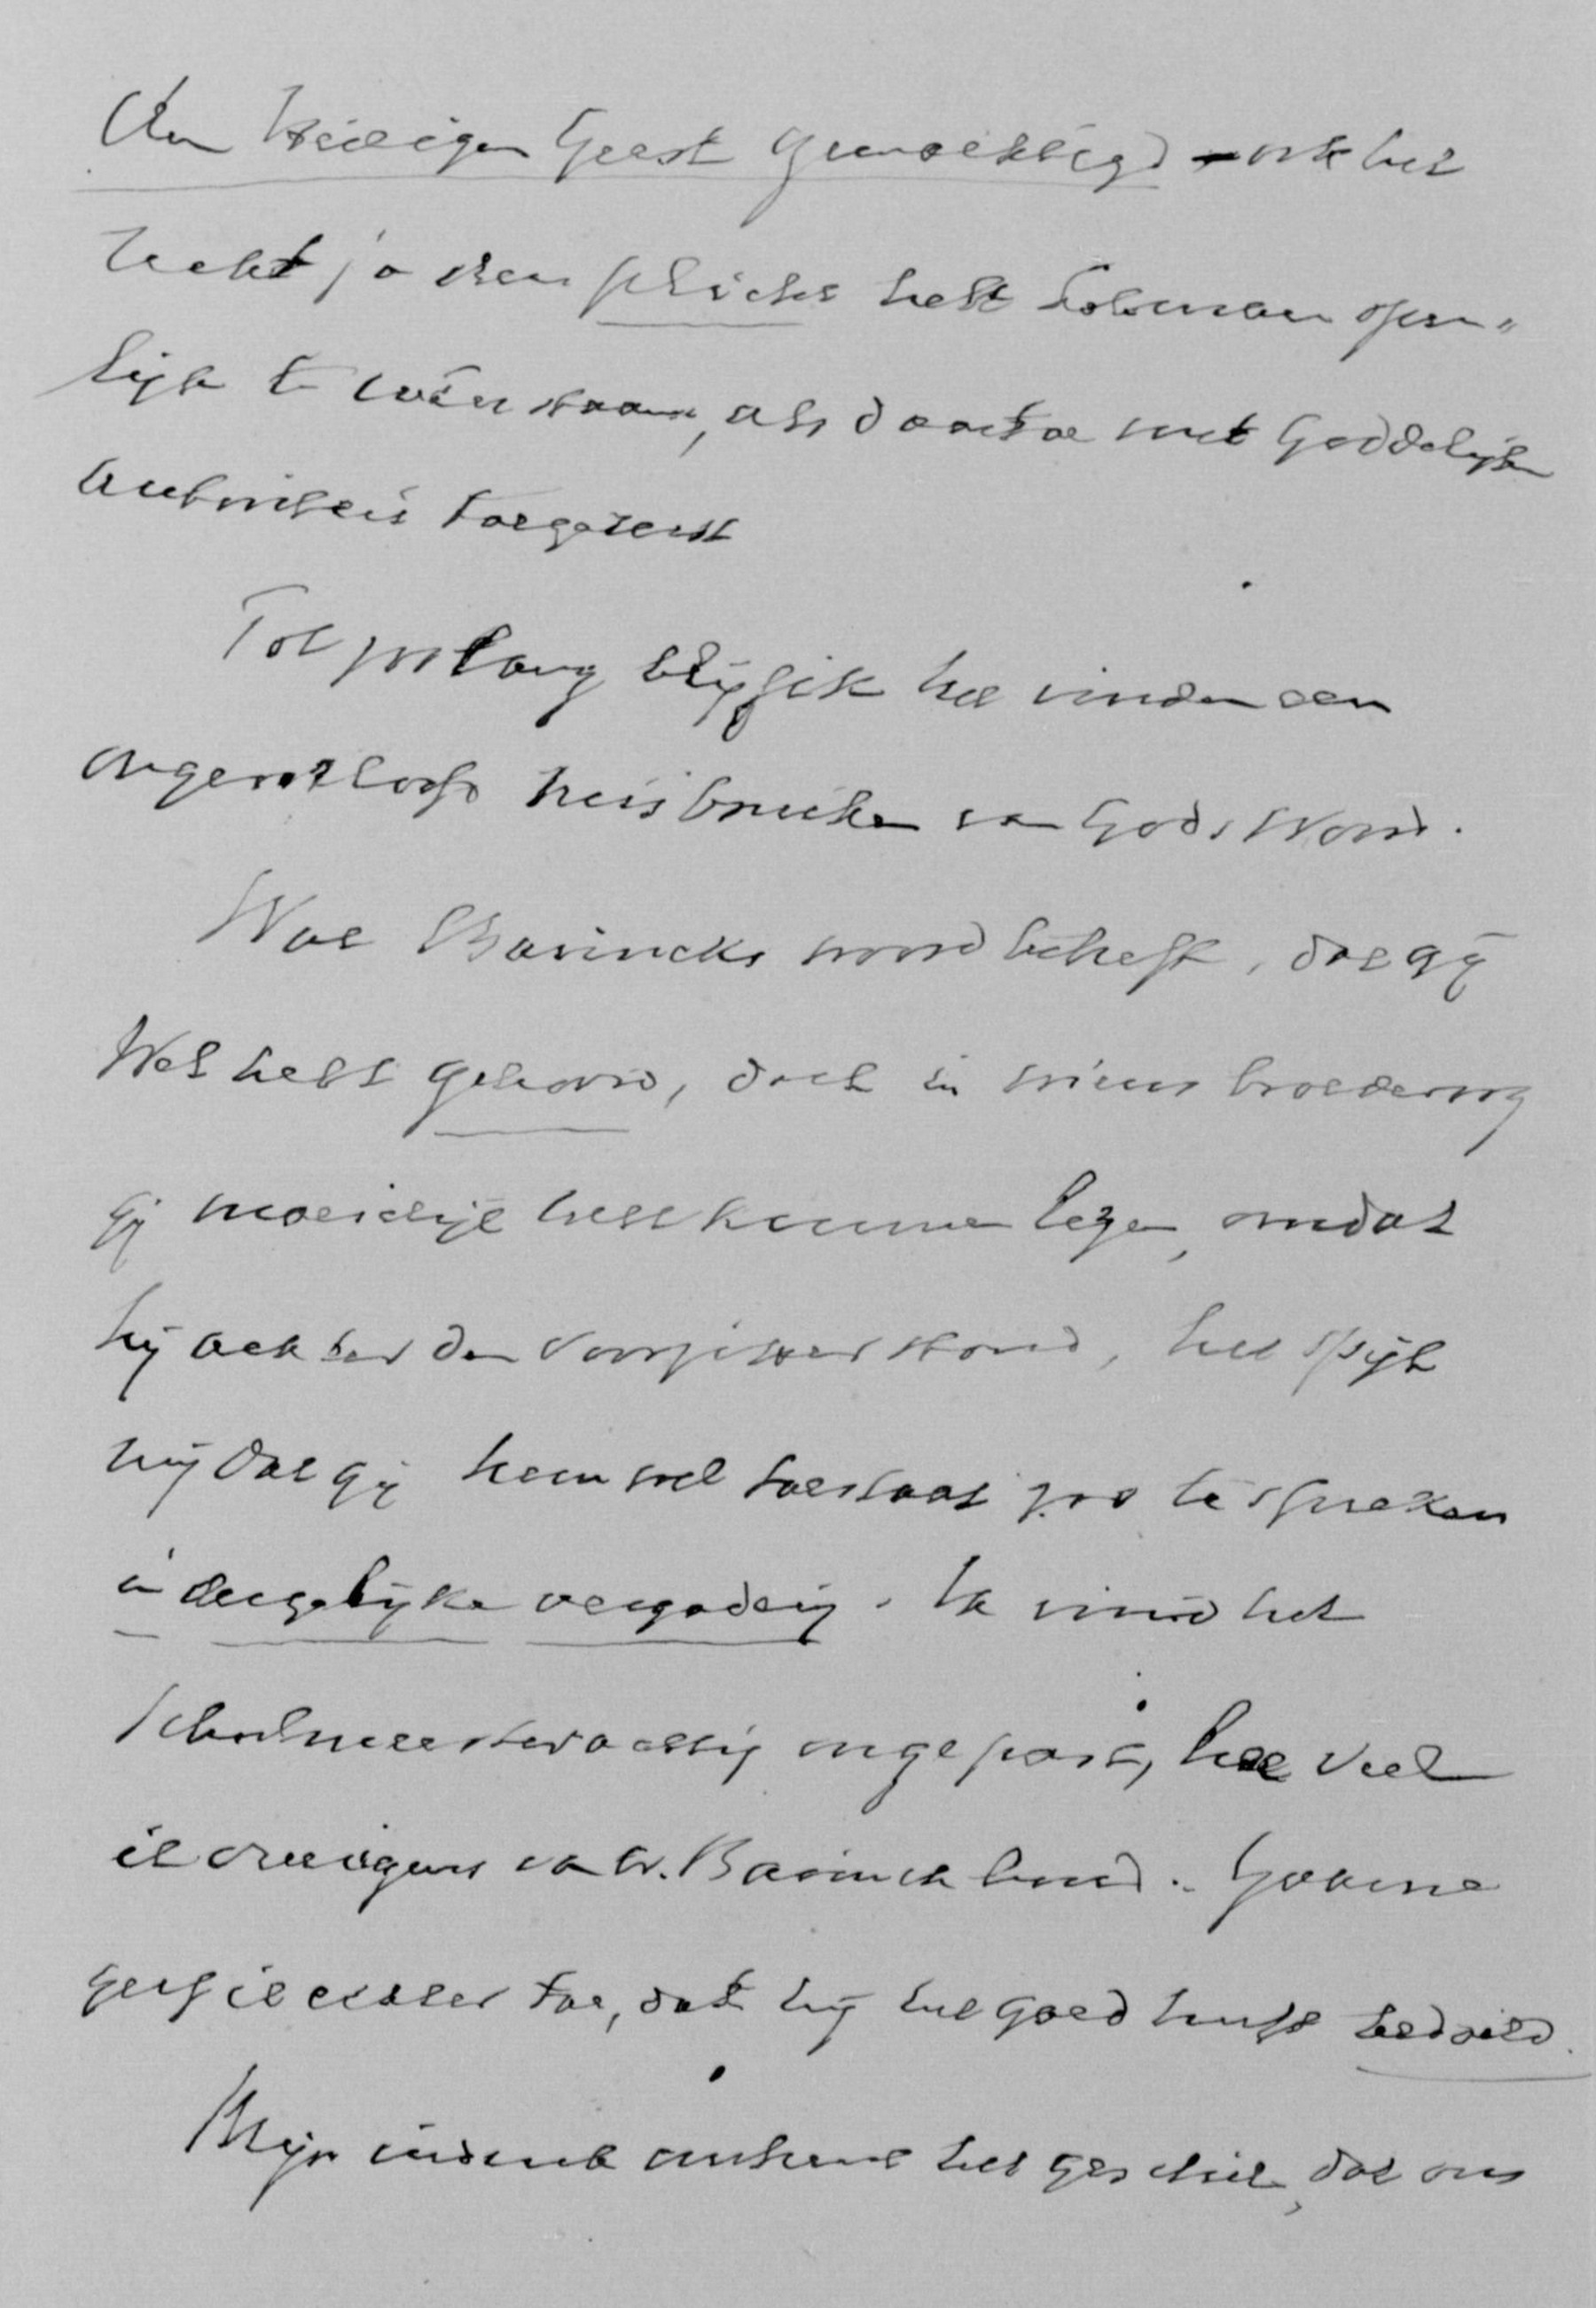 den Heiligen Geest gemachtigd ook het
recht ja den plicht hebt Lohman open„
lijk te weerstaan, als daartoe met Goddelijke
autoriteit toegerust
Tot zoolang blijf ik het vinden een
ongeoorloofd misbruiken van Gods Woord.
Wat Bavincks woord betreft, dat gij
Wel hebt gehoord, doch in wiens broederoog
gij moeielijk hebt kunnen lezen, omdat
hij achter den voorzitter stond, het spijt
mij dat gij hem wel toestaat zoo te spreken
in dergelijke vergadering. Ik vind het
Schoolmeesterachtig ongepast, hoe veel
ik overigens van br. Bavinck houd. Gaarne
geef ik echter toe, dat hij het goed heeft bedoeld.
Mijn indruk omtrent het geschil, dat ons